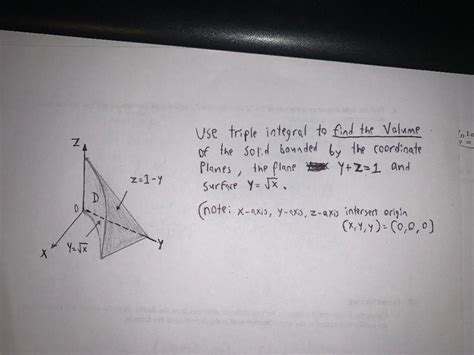 Use triple integral to find the Volume
of the solid bounded by the coordinate
Planes, the plane Y+Z=1 and
surface Y=√X.
(note: x-axis, y-axis, z-axis intersect origin
(X,Y,Y)=(0,0,0)
Z
Z=1-Y
D
O
Y=√X
X
Y